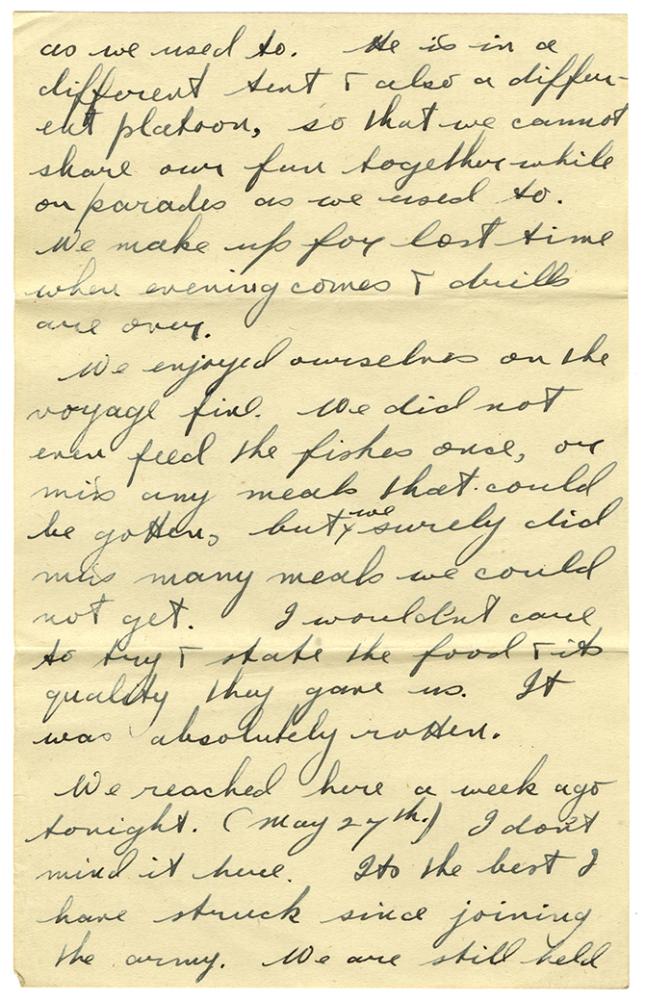 as we used to. He is in a
different tent & also a differ-
ent platoon, so that we cannot
share our fun together while
on parades as we used to.
We make up for lost time
when evening comes & drills
are over.
We enjoyed ourselves on the
voyage fine. We did not
even feed the fishes once, or
miss any meals that could
be gotten, but we surely did
miss many meals we could
not get. I wouldn't care
to try & state the food & its
quality they gave us. It
was absolutely rotten.
We reached here a week ago
tonight. (May 27th.) I don't
mind it here. Its the best I
have struck since joining
the army. We are still held